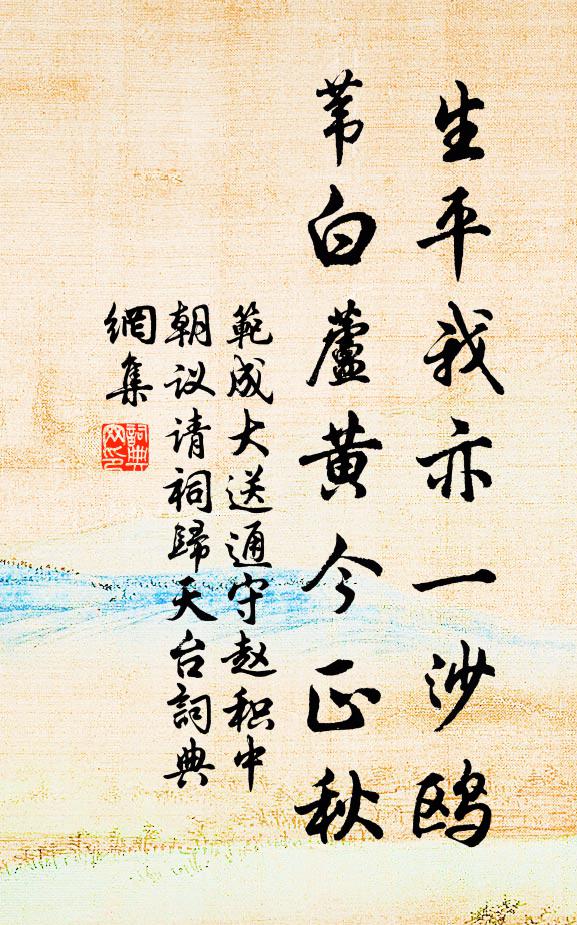 生平我亦一沙鸥
苇白蘆黄今正秋
範成大送通守赵积中
朝议请祠歸天台詞典
網集
詞典網印